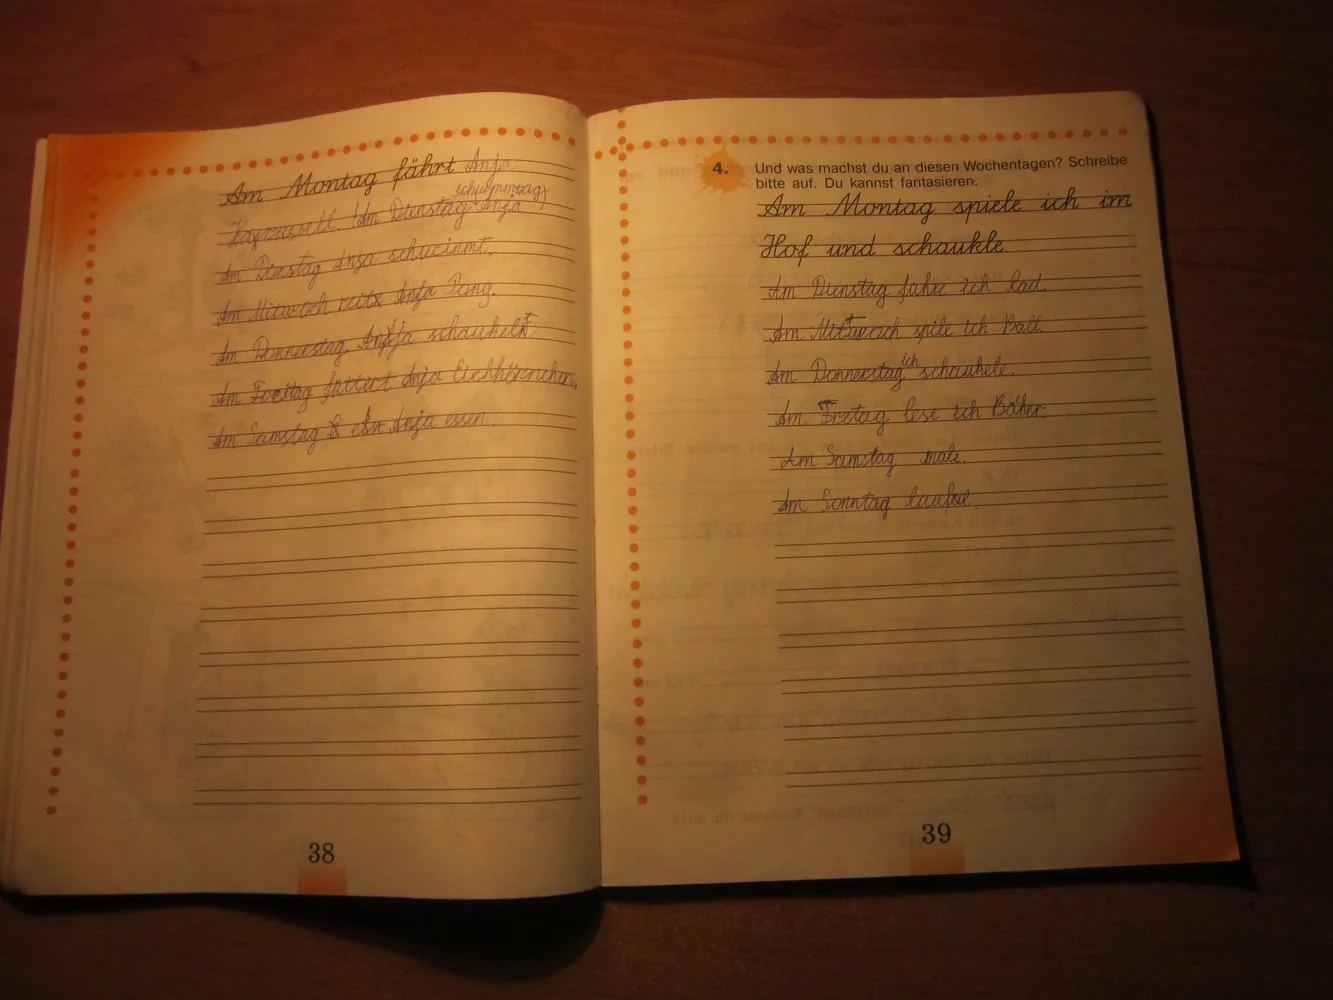 Am Montag fährt Anja
schwimmtag
Karussell. Am Dienstag Anja
Am Dinstag Anja schwimmt.
Am Mitwoch reite Anja Pong.
Am Donnerstag Anja schaukelt
Am Freitag füttert Anja Eichhörnchen,
Am Samstag Anja essen.
38
4. Und was machst du an diesen Wochentagen? Schreibe
bitte auf. Du kannst fantasieren.
Am Montag spiele ich im
Hof und schaukle.
Am Dienstag fahre ich Rad.
Am Mittwoch spile ich Ball.
Am Donnerstag ich schaukele.
Am Freitag lese ich
Am Samstag male.
Am Sonntag
39